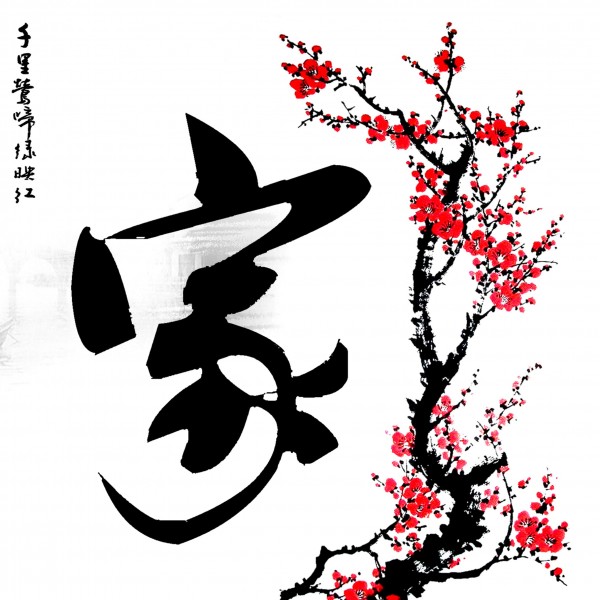 千里莺啼绿映红
家